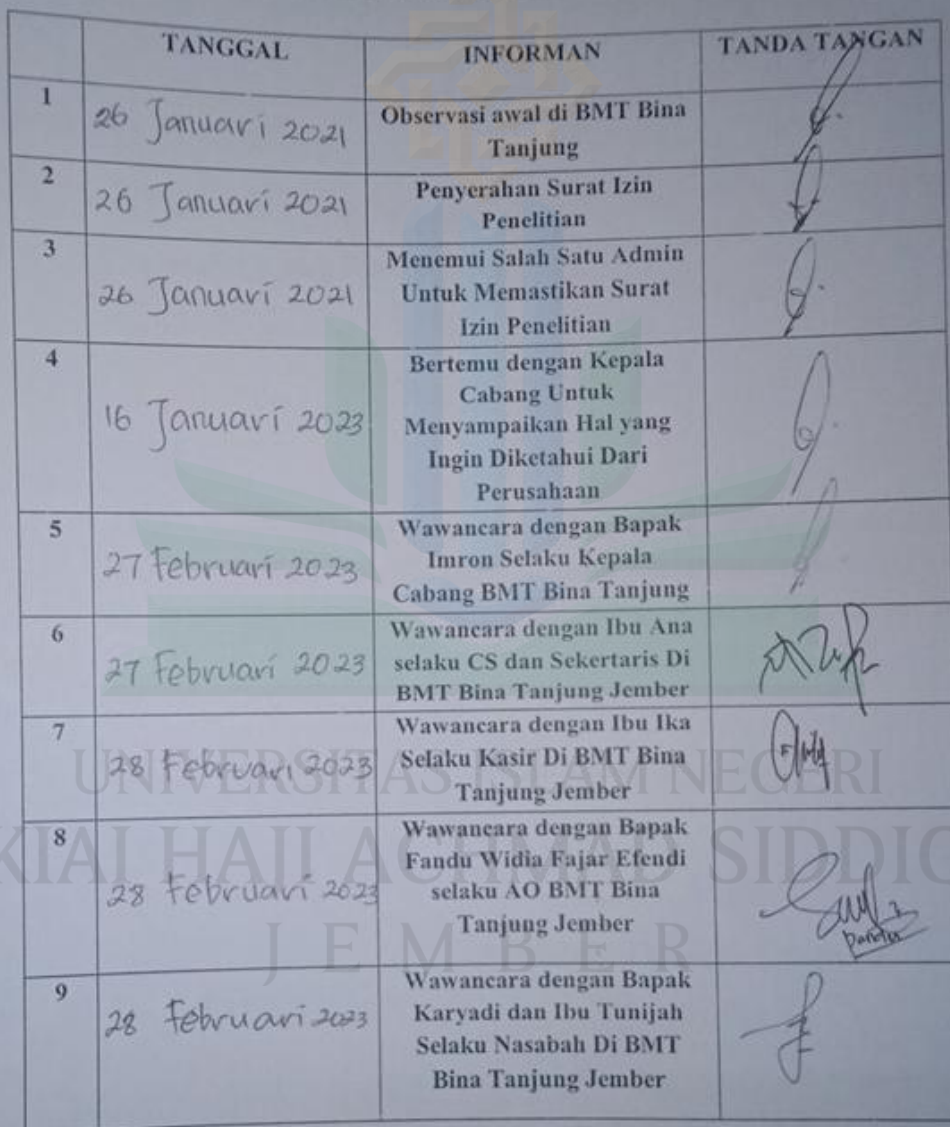 TANGGAL INFORMAN TANDA TANGAN
1 26 Januari 2021 Observasi awal di BMT Bina
Tanjung
2 26 Januari 2021 Penyerahan Surat Izin
Penelitian
3 26 Januari 2021 Menemui Salah Satu Admin
Untuk Memastikan Surat
Izin Penelitian
4 16 Januari 2023 Bertemu dengan Kepala
Cabang Untuk
Menyampaikan Hal yang
Ingin Diketahui Dari
Perusahaan
5 27 Februari 2023 Wawancara dengan Bapak
Imron Selaku Kepala
Cabang BMT Bina Tanjung
6 27 Februari 2023 Wawancara dengan Ibu Ana
selaku CS dan Sekertaris Di
BMT Bina Tanjung Jember
7 28 Februari 2023 Wawancara dengan Ibu Ika
Selaku Kasir Di BMT Bina
Tanjung Jember
8 28 Februari 2023 Wawancara dengan Bapak
Fandu Widia Fajar Efendi
selaku AO BMT Bina
Tanjung Jember
9 28 Februari 2023 Wawancara dengan Bapak
Karyadi dan Ibu Tunijah
Selaku Nasabah Di BMT
Bina Tanjung Jember
UNIVERSITAS ISLAM NEGERI
KIAI HAJI ACHMAD
JEMBER